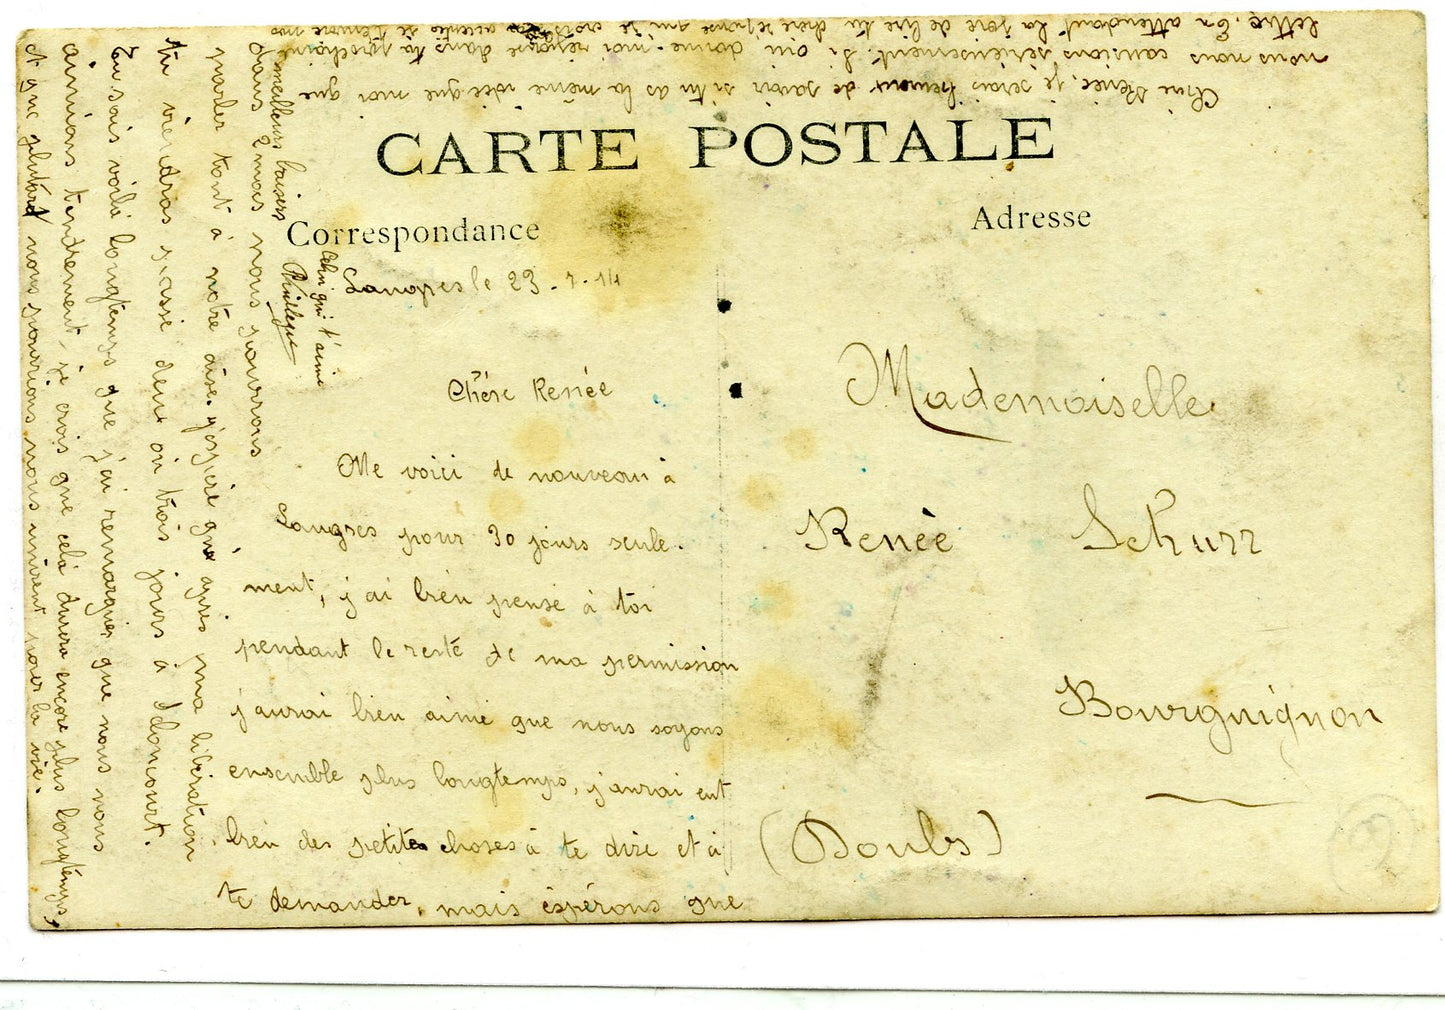 CARTE POSTALE
Correspondance
Adresse
Langres le 23-7-14
Chère Renée
Me voici de nouveau à
Langres pour 30 jours seule-
ment, j'ai bien pensé à toi
pendant le reste de ma permission
j'aurai bien aimé que nous soyons
ensemble plus longtemps, j'aurai eut
bien des petites choses à te dire et à
te demander, mais éspérons que
dans 2 mois nous pourrons
parler tout à notre aise. j'espère que après ma libération
tu viendras passé deux ou trois jours à Idoncourt.
Tu sais voilà longtemps que j'ai remarquer que nous nous
aimions tendrement, je crois que celà durera encore plus longtemps,
et que plutard nous pourrions nous unirent pour la vie.
Chère Renée, je serais heureux de savoir si tu as la même idée que moi que
nous nous causions sérieusement. Si oui donne-moi réponse dans ta prochaine
lettre. En attendant la joie de lire ta chère réponse qui je crois
accepte de t'envoyer mes
meilleurs baisers
Celui qui t'aime
Philippe
Mademoiselle
Renée Schurr
Bourguignon
(Doubs)